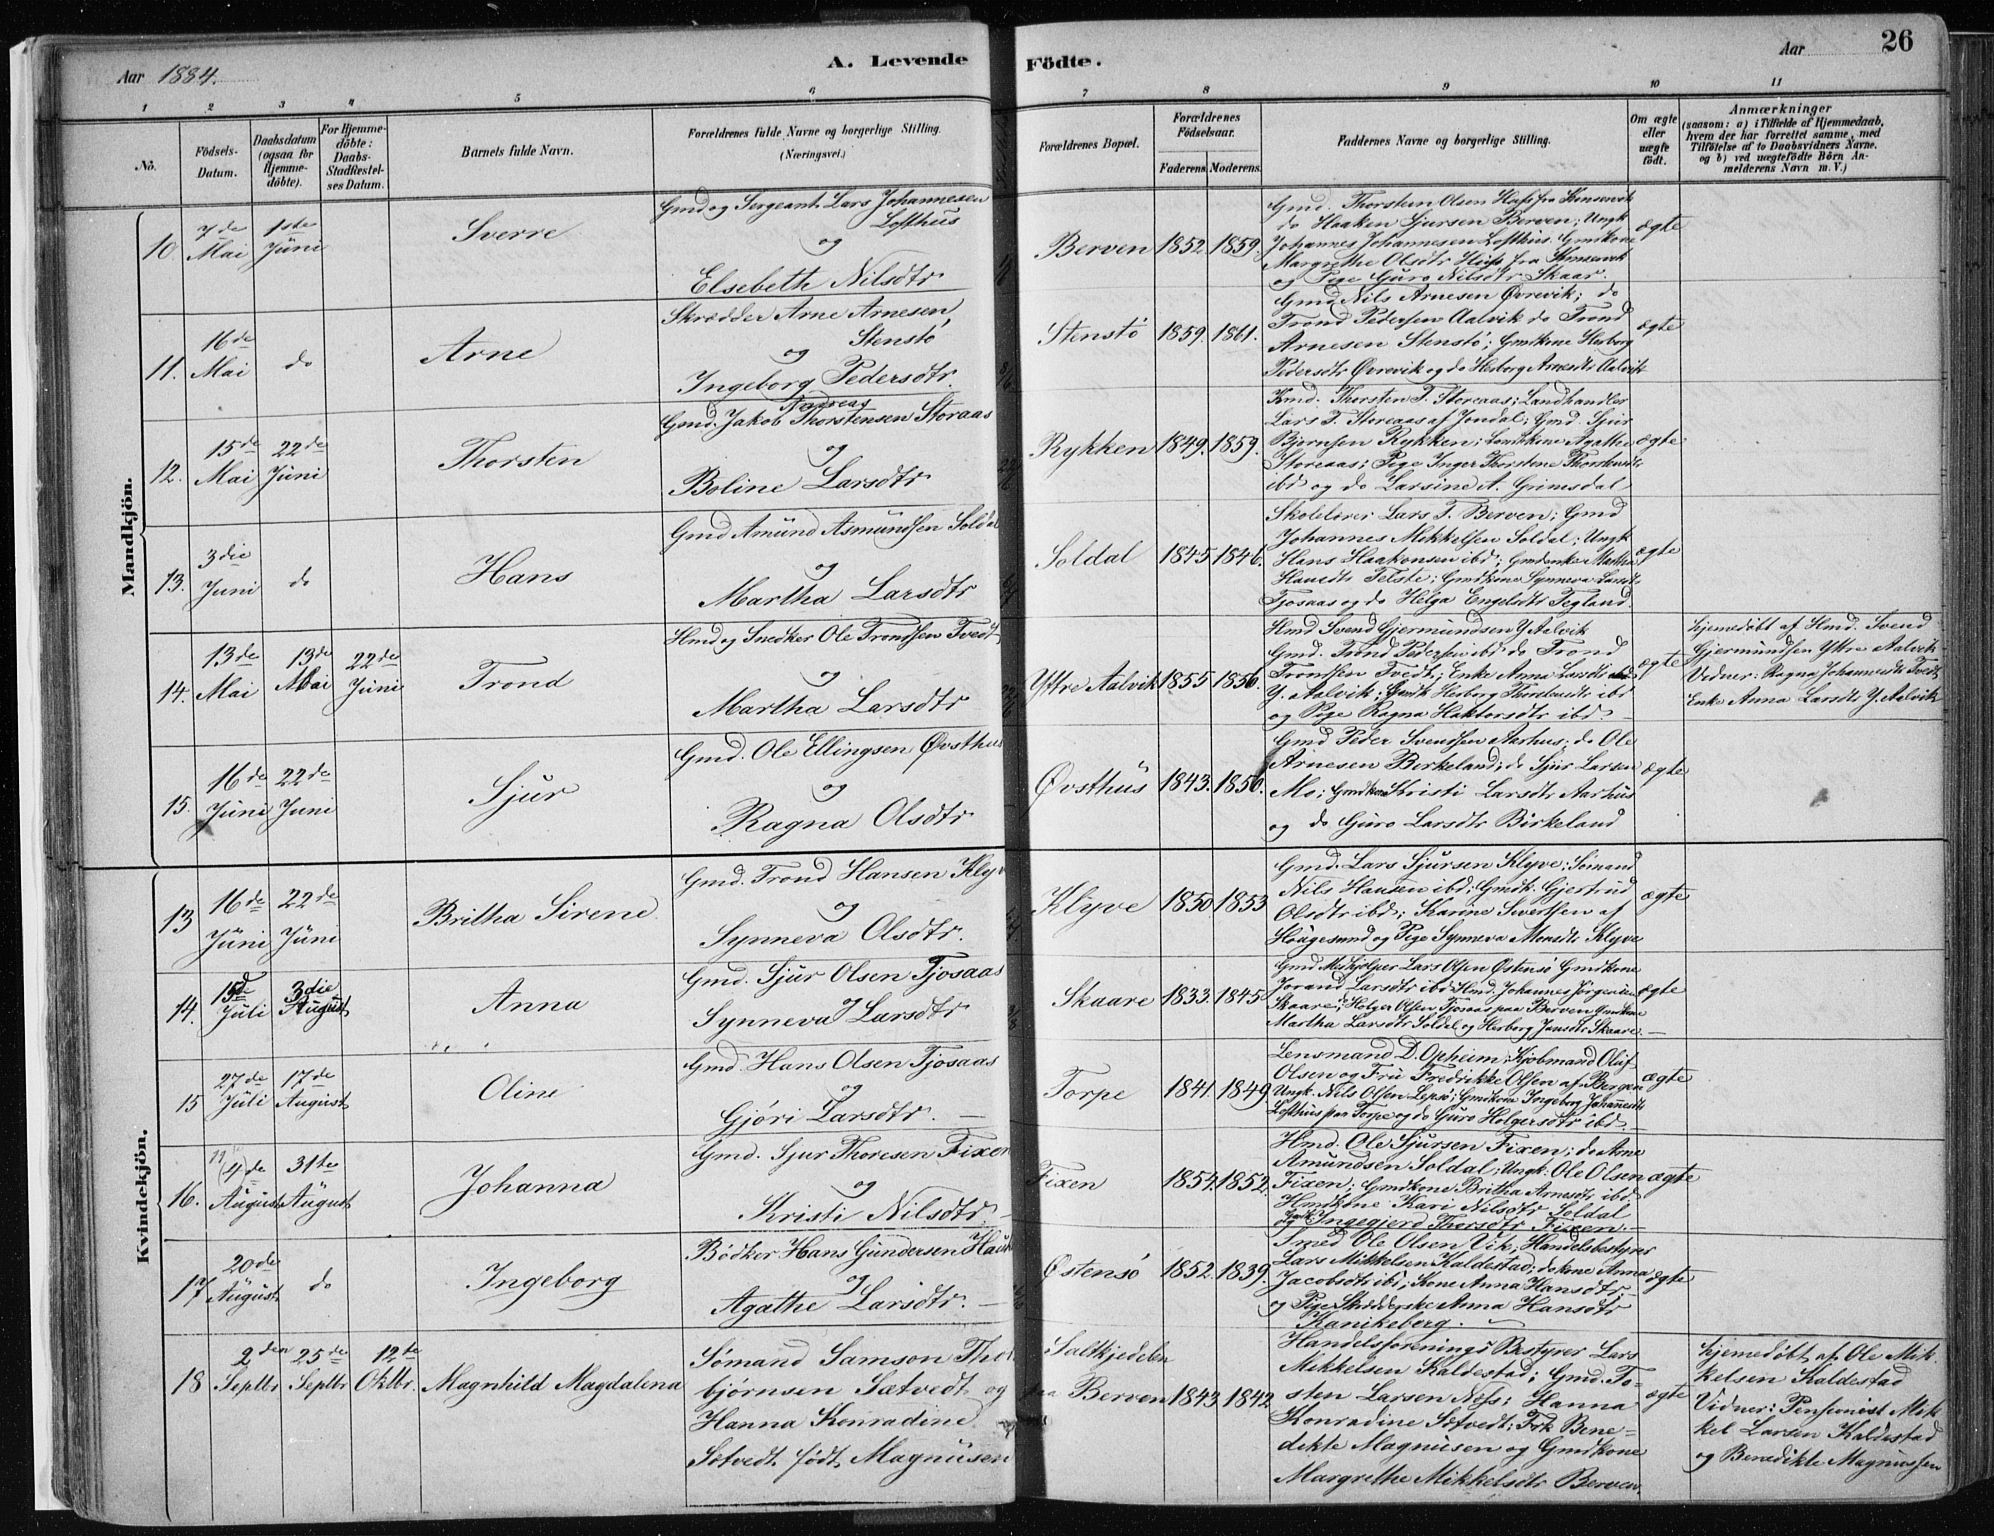 26
Aar 1884.
A. Levende Födte.
Aar
1 2 3 4 5 6 7 8 9 10 11
No.
Födsels-
Datum.
Daabsdatum
(ogsaa for
Hjemme-
døbte).
For Hjemme-
døbte:
Daabs-
Stadfestel-
ses Datum.
Barnets fulde Navn.
Forældrenes fulde Navne og borgerlige Stilling.
(Næringsvei.)
Forældrenes Bopæl.
Forældrenes
Födselsaar.
Faderens Moderens
Faddernes Navne og borgerlige Stilling.
Om ægte
eller
uægte
födt.
Anmærkninger
(saasom: a) i Tilfælde af Hjemmedaab,
hvem der har forrettet samme, med
Tilföielse af to Daabsvidners Navne,
og b) ved uegtefödte Börn An-
melderens Navn m. V.)
Mandkjön.
10. 7de Mai
1ste Juni
Sverre
Gmd og Sergeant Lars Johannesen
Lofthus
og
Elsebeth Nilsdtr
Berven 1852. 1859.
Gmd. Thorstein Olsen Huse fra Kinservik
do Haaken Sjursen Berven; Ungk
Johannes Johannesen Lofthus. Gmdkone
Margrethe Olsdtr Huse fra Kinservik
og Pige Guro Nilsdtr Skaar.
ægte
11. 16de Mai
do
Arne
Skrædder Arne Arnesen
Stenstö
og
Ingeborg Pedersdtr.
Stenstö 1859. 1861.
Gmd Nils Arnesen Øvrevik; do
Trond Pedersen Aalvik do Trond
Arnesen Stenstö; Gmdkone Herborg
Pedersdtr Øvrevik og do Herborg Arnesdtr Aalvik
ægte
12. 15de Mai
22de Juni
Thorsten
Andreas
Gmd. Jakob Thorstensen Storaas
og
Boline Larsdtr
Rykken 1849. 1859.
Kmd. Thorsten T. Storeaas; Landhandler
Lars T. Storeaas af Jondal; Gmd. Sjur
Bjørnsen Rykken; Agathe
Storeaas; Pige Inger Thorstensdtr
ibd og do Larsine A. Grimsdal
ægte
13. 3die Juni
do
Hans
Gmd Amund Asmundsen Soldal
og
Martha Larsdtr
Soldal 1845 1846.
Skolelærer Lars T. Berven; Gmd
Johannes Mikkelsen Soldal; Ungk
Hans Haakonsen ibd; Gmdenke Martha
Telste; Gmdkone Synneva Larsdtr
Tjosaas og do Helga Engelsdtr Tegland.
ægte
14. 13de Mai
13de Mai
22de Juni
Trond
Hmd og Snedker Ole Trondsen Tvedt
og
Martha Larsdtr
Yttre Aalvik 1855 1856.
Hmd Svend Gjermundsen Y. Aalvik
Gmd. Trond Pedersen ibd do Trond
Trondsen Tvedt; Enke Anna Larsdtr
Y. Aalvik; Gmdk Herborg ibd
og Pige Ragna Haktorsdtr ibd.
ægte
hjemedøbt af Hmd. Svend
Gjermundsen Yttre Aalvik
Vidner: Ragna Johannesdtr Tvedt
Enke Anna Larsdtr Y. Aalvik
15. 16de Juni
22de Juni
Sjur
Gmd. Ole Ellingsen Øvsthus
og
Ragna Olsdtr
Øvsthus 1843. 1850.
Gmd Peder Svendsen Aarhus; do Ole
Arnesen Birkeland; do Sjur Larsen
Mo; Gmdkone Kristi Larsdtr Aarhus
og do Guro Larsdtr Birkeland
ægte
Kvindekjön.
13 16de Juni
22de Juni
Britha Sirene
Gmd. Trond Hansen Klyv
og
Synneva Olsdtr.
Klyve 1850 1853
Gmd. Lars Sjursen Klyve; Sömand
Nils Hansen ibd; Gmdk: Gjertrud
Olsdtr ibd; Karine Sivertsen af
Høugesund og Pige Synneva Monsdtr Klyve
ægte
14. Juli
3die August
Anna
Gmd. Sjur Olsen Tjosaas
og
Synneva Larsdtr
Skaare 1833. 1845
Gmd Meshjelper Lars Olsen Östensö Gmdkone
Jorand Larsdtr ibd Hmd. Johannes Jørgensen
Skaare; Holger Olsen Tjosaas paa Berven Gmdkone
Martha Larsdtr Soldal og Herborg Jansdtr Skaare.
ægte
15 27de Juli
17de August
Oline
Gmd. Hans Olsen Tjosaas
og
Gjöri Larsdtr.
Torpe 1841. 1849.
Lensmand D. Opheim; Kjöbmand Oluf
Olsen og Fru Fredrikke Olsen af Bergen
Ungk. Nils Olsen Lepsö; Gmdkone Ingeborg Johannesdtr
Lofthus paa Torpe og do Guro Holgersdtr ibd.
ægte
16. 4de August
31te August
Johanna
Gmd. Sjur Thoresen Fixen
og
Kristi Nilsdtr
Fixen 1854. 1852.
Hmd. Ole Sjursen Fixen; do Arne
Amundsen Soldal; Ungk. Ole Olsen
Fixen; Gmdkone Britha Arnesdtr ibd.
Hmdkone Kari Nilsdtr Soldal
og Ingegjerd Thorsdtr Fixen.
ægte
17 20de August
do
Ingeborg
Bödker Hans Gundersen
og
Agathe Larsdtr.
Østensö 1852. 1839.
Smed Ole Olsen Vik; Handelsbestyrer
Lars Mikkelsen Kaldestad; do kone Anna
Jacobsdtr ibd; Kone Anna Hansdtr
og Pige Anna Hansdtr
Kanikeberg.
ægte
18 2den Septbr
25de Septbr
12te Oktbr.
Magnhild Magdalena
Sömand Samson Thor
bjørnsen Sætvedt og
Hanna Konradine
Sætvedt født Magnusen
Saltkjedelen
paa Berven 1843. 1842.
Handelsforenings Bestyrer Lars
Mikkelsen Kaldestad; Gmd. To-
sten Larsen Næs; Hanna
Konradine Sætvedt; Frk Bene-
dikte Magnusen og Gmdkone
Margrethe Mikkelsdtr Berven.
ægte
hjemedøbt af Ole Mik-
kelsen Kaldestad
Vidner: Pensionist Mik-
kel Larsen Kaldestad
og Benedikte Magnussen